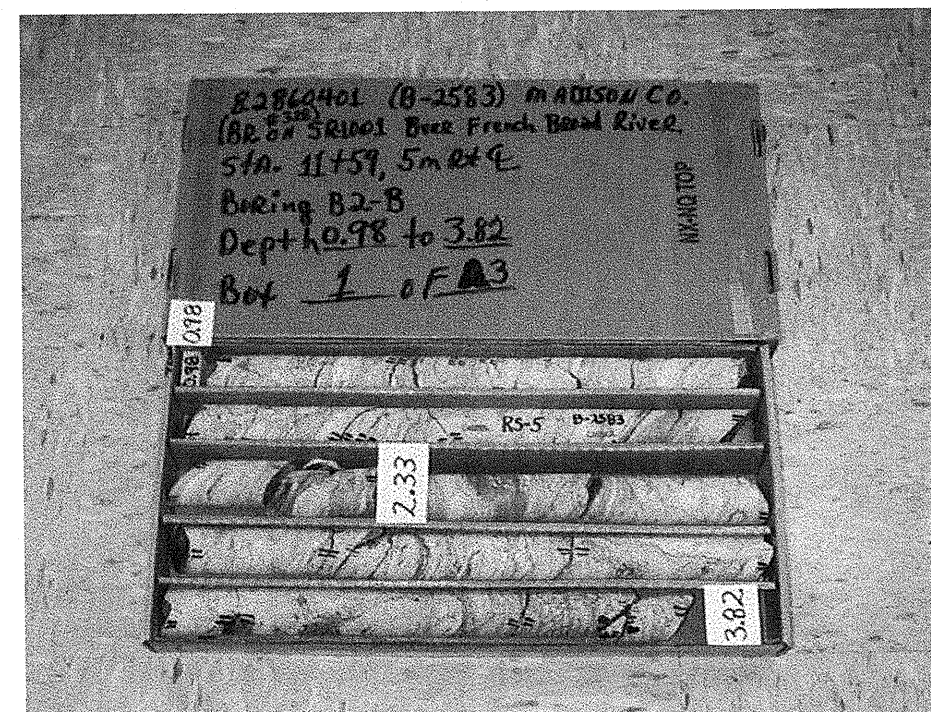 8.2860401 (B-2583) MADISON CO.
(BR ON SR1001 Over French Broad River
Sta. 11+59, 5m Rt ℄
Boring B2-B
Depth 0.98 to 3.82
Box 1 of 3
NX-NQ TOP
0.98
0.98
RS-5 B-2583
2.33
3.82